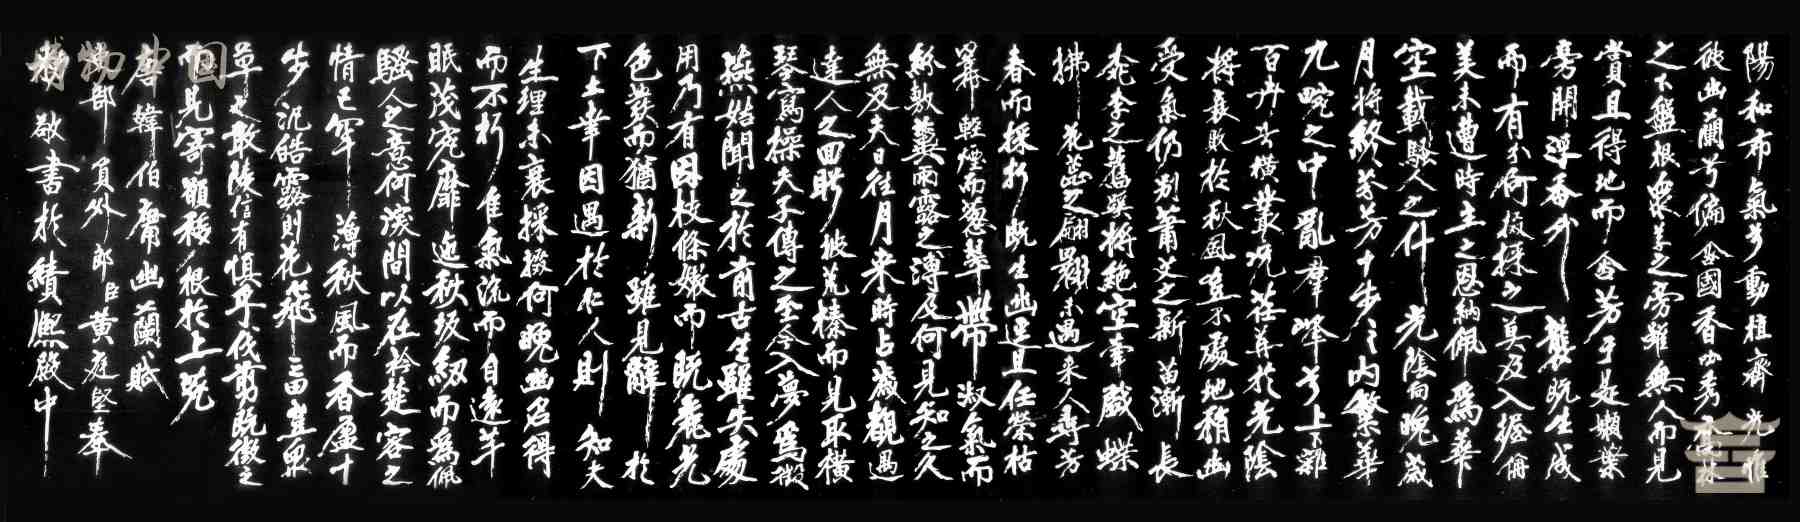 陽和布氣兮動植齊光惟
彼幽蘭兮偏含國香吐秀喬林
之下盤根眾草之旁雖無人而見
賞且得地而含芳于是嫩葉
旁開浮香外襲既生成
而有分何掇採之莫及入握稱
美未遭時主之恩納佩為華
空載騷人之什光陰向晚歲
月將終芬芳十步之內繁華
九畹之中亂群峰兮上下雜
百卉兮橫叢況荏苒於光陰
將衰敗於秋風豈不處地稍幽
受氣仍別蕭艾之新苗漸長
桃李之舊蹊將絕空牽戲蝶
拂花蕊之翩翾未遇來人尋芳
春而採折既生幽逕且任榮枯
冪輕煙而蔥翠帶淑氣而
紛敷冀雨露之溥及何見知之久
無及夫日往月來時占歲觀遇
達人之回眄披荒榛而見取橫
琴寫操夫子傳之至今入夢為徵
燕姞聞之於前古生雖失處
用乃有因枝條嫩而既麗光
色發而猶新雖見辭於
下土幸因遇於仁人則知夫
生理未衰採掇何晚幽名得
而不朽佳氣流而自遠芊
眠茂宛靡迤秋坂紉而為佩
騷人之意何深間以在衿楚客之
情已罕薄秋風而香盈十
步泛皓露則花飛一畝豈
草之敢陵信有慎乎伐剪既徵之
而見寄願移根於上苑
唐韓伯庸幽蘭賦
部員外郎臣黃庭堅奉
敕敬書於績熙殿中